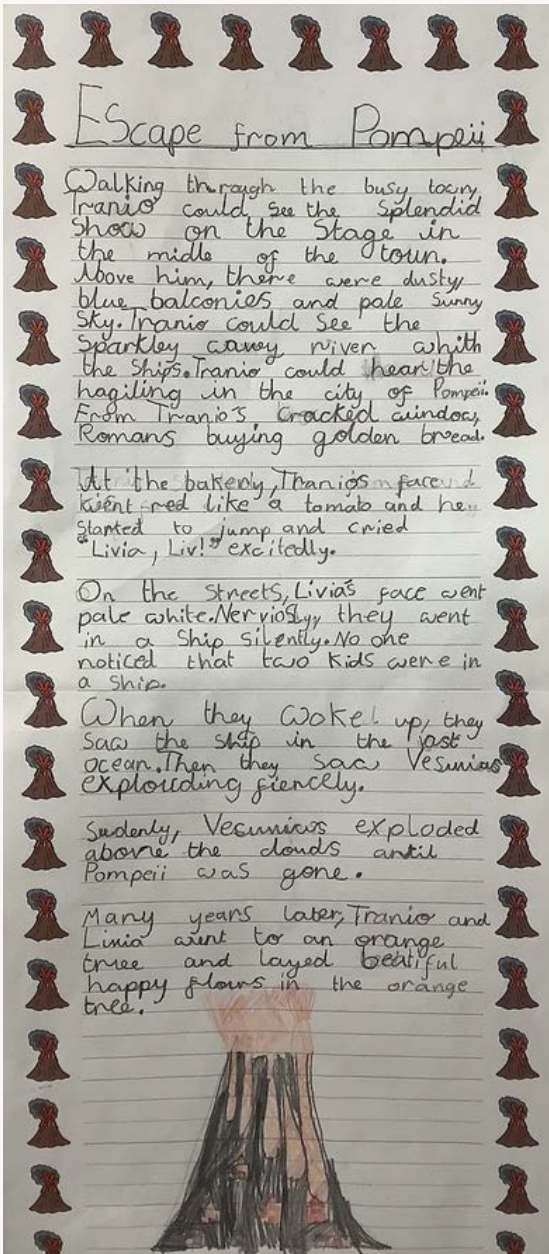 Escape from Pompeii
Walking through the busy town
Tranio could see the splendid
show on the stage in
the midle of the town.
Above him, there were dusty
blue balconies and pale sunny
sky. Tranio could see the
sparkley wavey river whith
the ships. Tranio could hear the
hagiling in the city of Pompeii.
From Tranio's cracked window,
Romans buying golden bread.
At the bakery, Tranios face
went red like a tomato and he
started to jump and cried
"Livia, Liv!" excitedly.
On the streets, Livia's face went
pale white. Nervioslyy they went
in a ship silently. No one
noticed that two kids were in
a ship.
When they woke up, they
saw the ship in the
ocean. Then they saw Vesuvias
explouding fiercely.
Sudenly, Vesuvius exploded
above the clouds until
Pompeii was gone.
Many years later, Tranio and
Livia went to an orange
truee and layed beatiful
happy flours in the orange
tree.